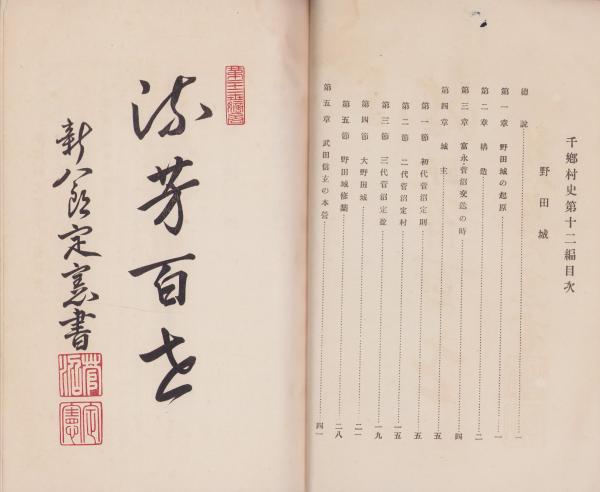 千鄕村史第十二編目次
野田城
總說……一
第一章 野田城の起原……一
第二章 構造……二
第三章 富永・菅沼交迭の時……四
第四章 城主……五
第一節 初代菅沼定則……五
第二節 二代菅沼定村……一五
第三節 三代菅沼定盈……一九
第四節 大野田城……二一
第五節 野田城修築……二八
第五章 武田信玄の本營……四一
流芳百世
新八郎定憲書
菅沼
定憲